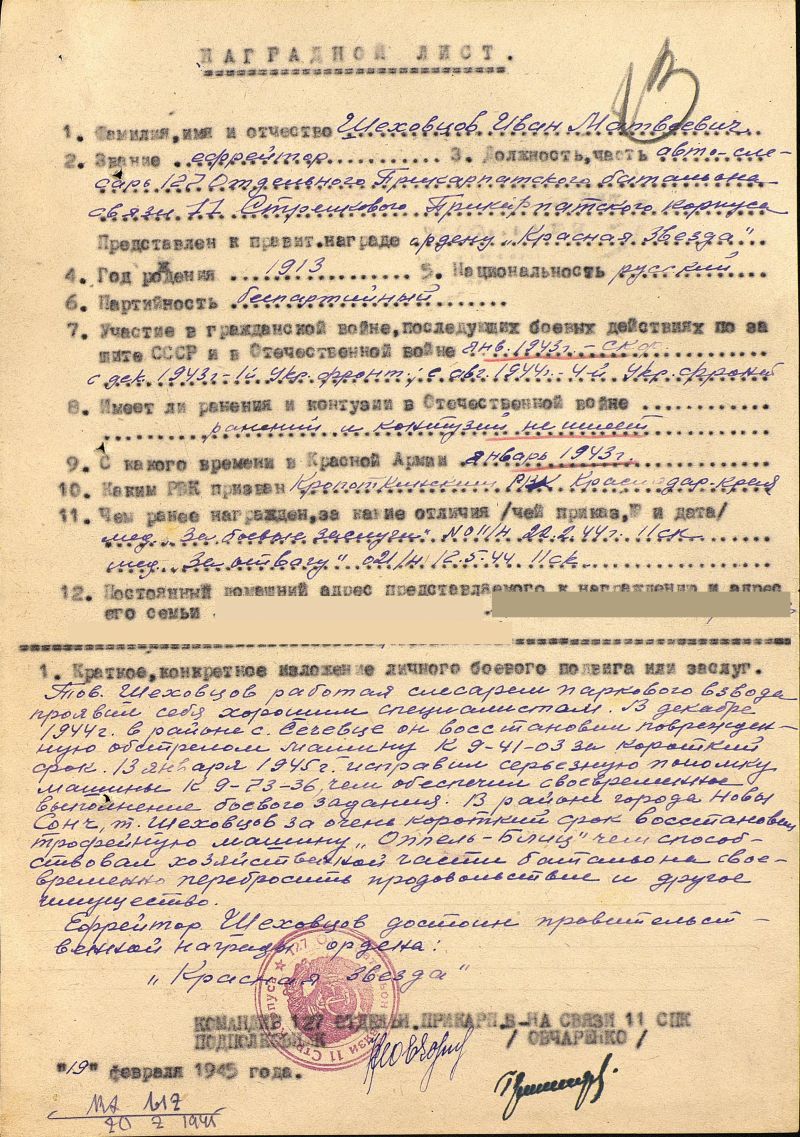 13
НАГРАДНОЙ ЛИСТ.
1. Фамилия,имя и отчество Шеховцов Иван Матвеевич
2. Звание ефрейтор 3. Должность,часть авто-сле-
сарь 127 Отдельного Прикарпатского батальона
связи 11 Стрелкового Прикарпатского корпуса
Представлен к правит.награде ордену „Красная Звезда"
4. Год рождения 1913 5. Национальность русский
6. Партийность беспартийный
7. Участие в гражданской войне,последующих боевых действиях по за
щите СССР и в Отечественной войне янв. 1943г.-СКФ
с дек. 1943г-1й Укр.фронт.; с авг.1944г.-4й Укр.фронт
8. Имеет ли ранения и контузии в Отечественной войне
ранений и контузий не имеет
9. С какого времени в Красной Армии январь 1943г.
10. Каким РВК призван Кропоткинским РВК Краснодар.края
11. Чем ранее награжден,за какие отличия /чей приказ,№ и дата/
мед. „За боевые заслуги" №011/н 22.2.44г. 11ск
мед. „За отвагу" 021/н 12.5.44 11ск
12. Постоянный домашний адрес представляемого к награждению и адрес
его семьи
1. Краткое,конкретное изложение личного боевого подвига или заслуг.
Тов. Шеховцов работая слесарем паркового взвода
проявил себя хорошим специалистом. В декабре
1944г. в районе с. Сечевце он восстановил поврежден-
ную обстрелом машину К 9-41-03 за короткий
срок. 13 января 1945г. исправил серьезную поломку
машины К 9-73-36, чем обеспечил своевременное
выполнение боевого задания. В районе города Новы
Сонч, т. Шеховцов за очень короткий срок восстановил
трофейную машину „Оппель-Блиц" чем способ-
ствовал хозяйственной части батальона свое-
временно перебросить продовольствие и другое
имущество.
Ефрейтор Шеховцов достоин правительст-
венной награды ордена:
„Красная Звезда"
КОМАНДИР 127 ОТДЕЛЬН.ПРИКАРП.Б-НА СВЯЗИ 11 СПК
ПОДПОЛКОВНИК / ОВЧАРЕНКО /
"19" февраля 1945 года.
20 2 1945